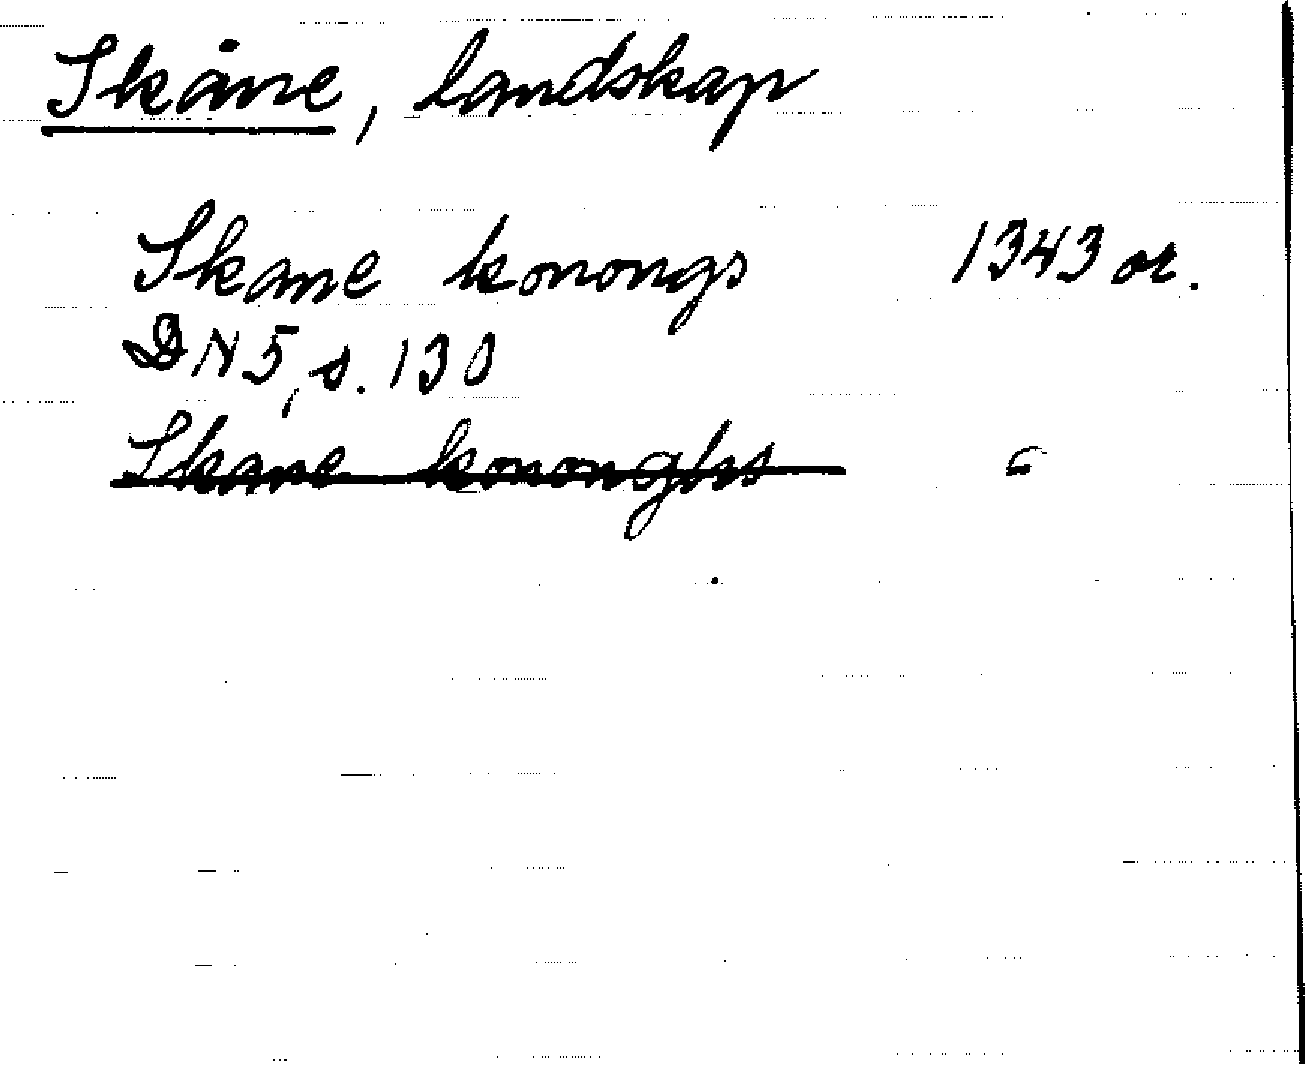 Skåne, landskap
Skane konongs 1343 or.
DN 5, s. 130
Skane kononghs "